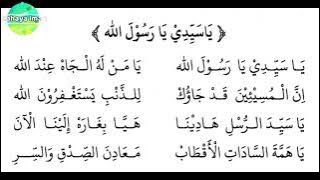 shaya.im
﴿ يَاسَيِّدِيْ يَا رَسُوْلَ الله ﴾
يَا سَيِّدِيْ يَا رَسُوْلَ الله يَا مَنْ لَهُ الْجَاهْ عِنْدَ الله
اِنَّ الْمُسِيْئِيْنَ قَدْ جَاؤُكْ لِلذَّنْبِ يَسْتَغْفِرُوْنَ الله
يَا سَيِّدَ الرُّسْلِ هَادِيْنَا هَيَّا بِغَارَهْ إِلَيْنَا الْآنَ
يَا هِمَّةَ السَّادَاتِ الْأَقْطَابْ مَعَادِنَ الصِّدْقِ وَالسِّرِ